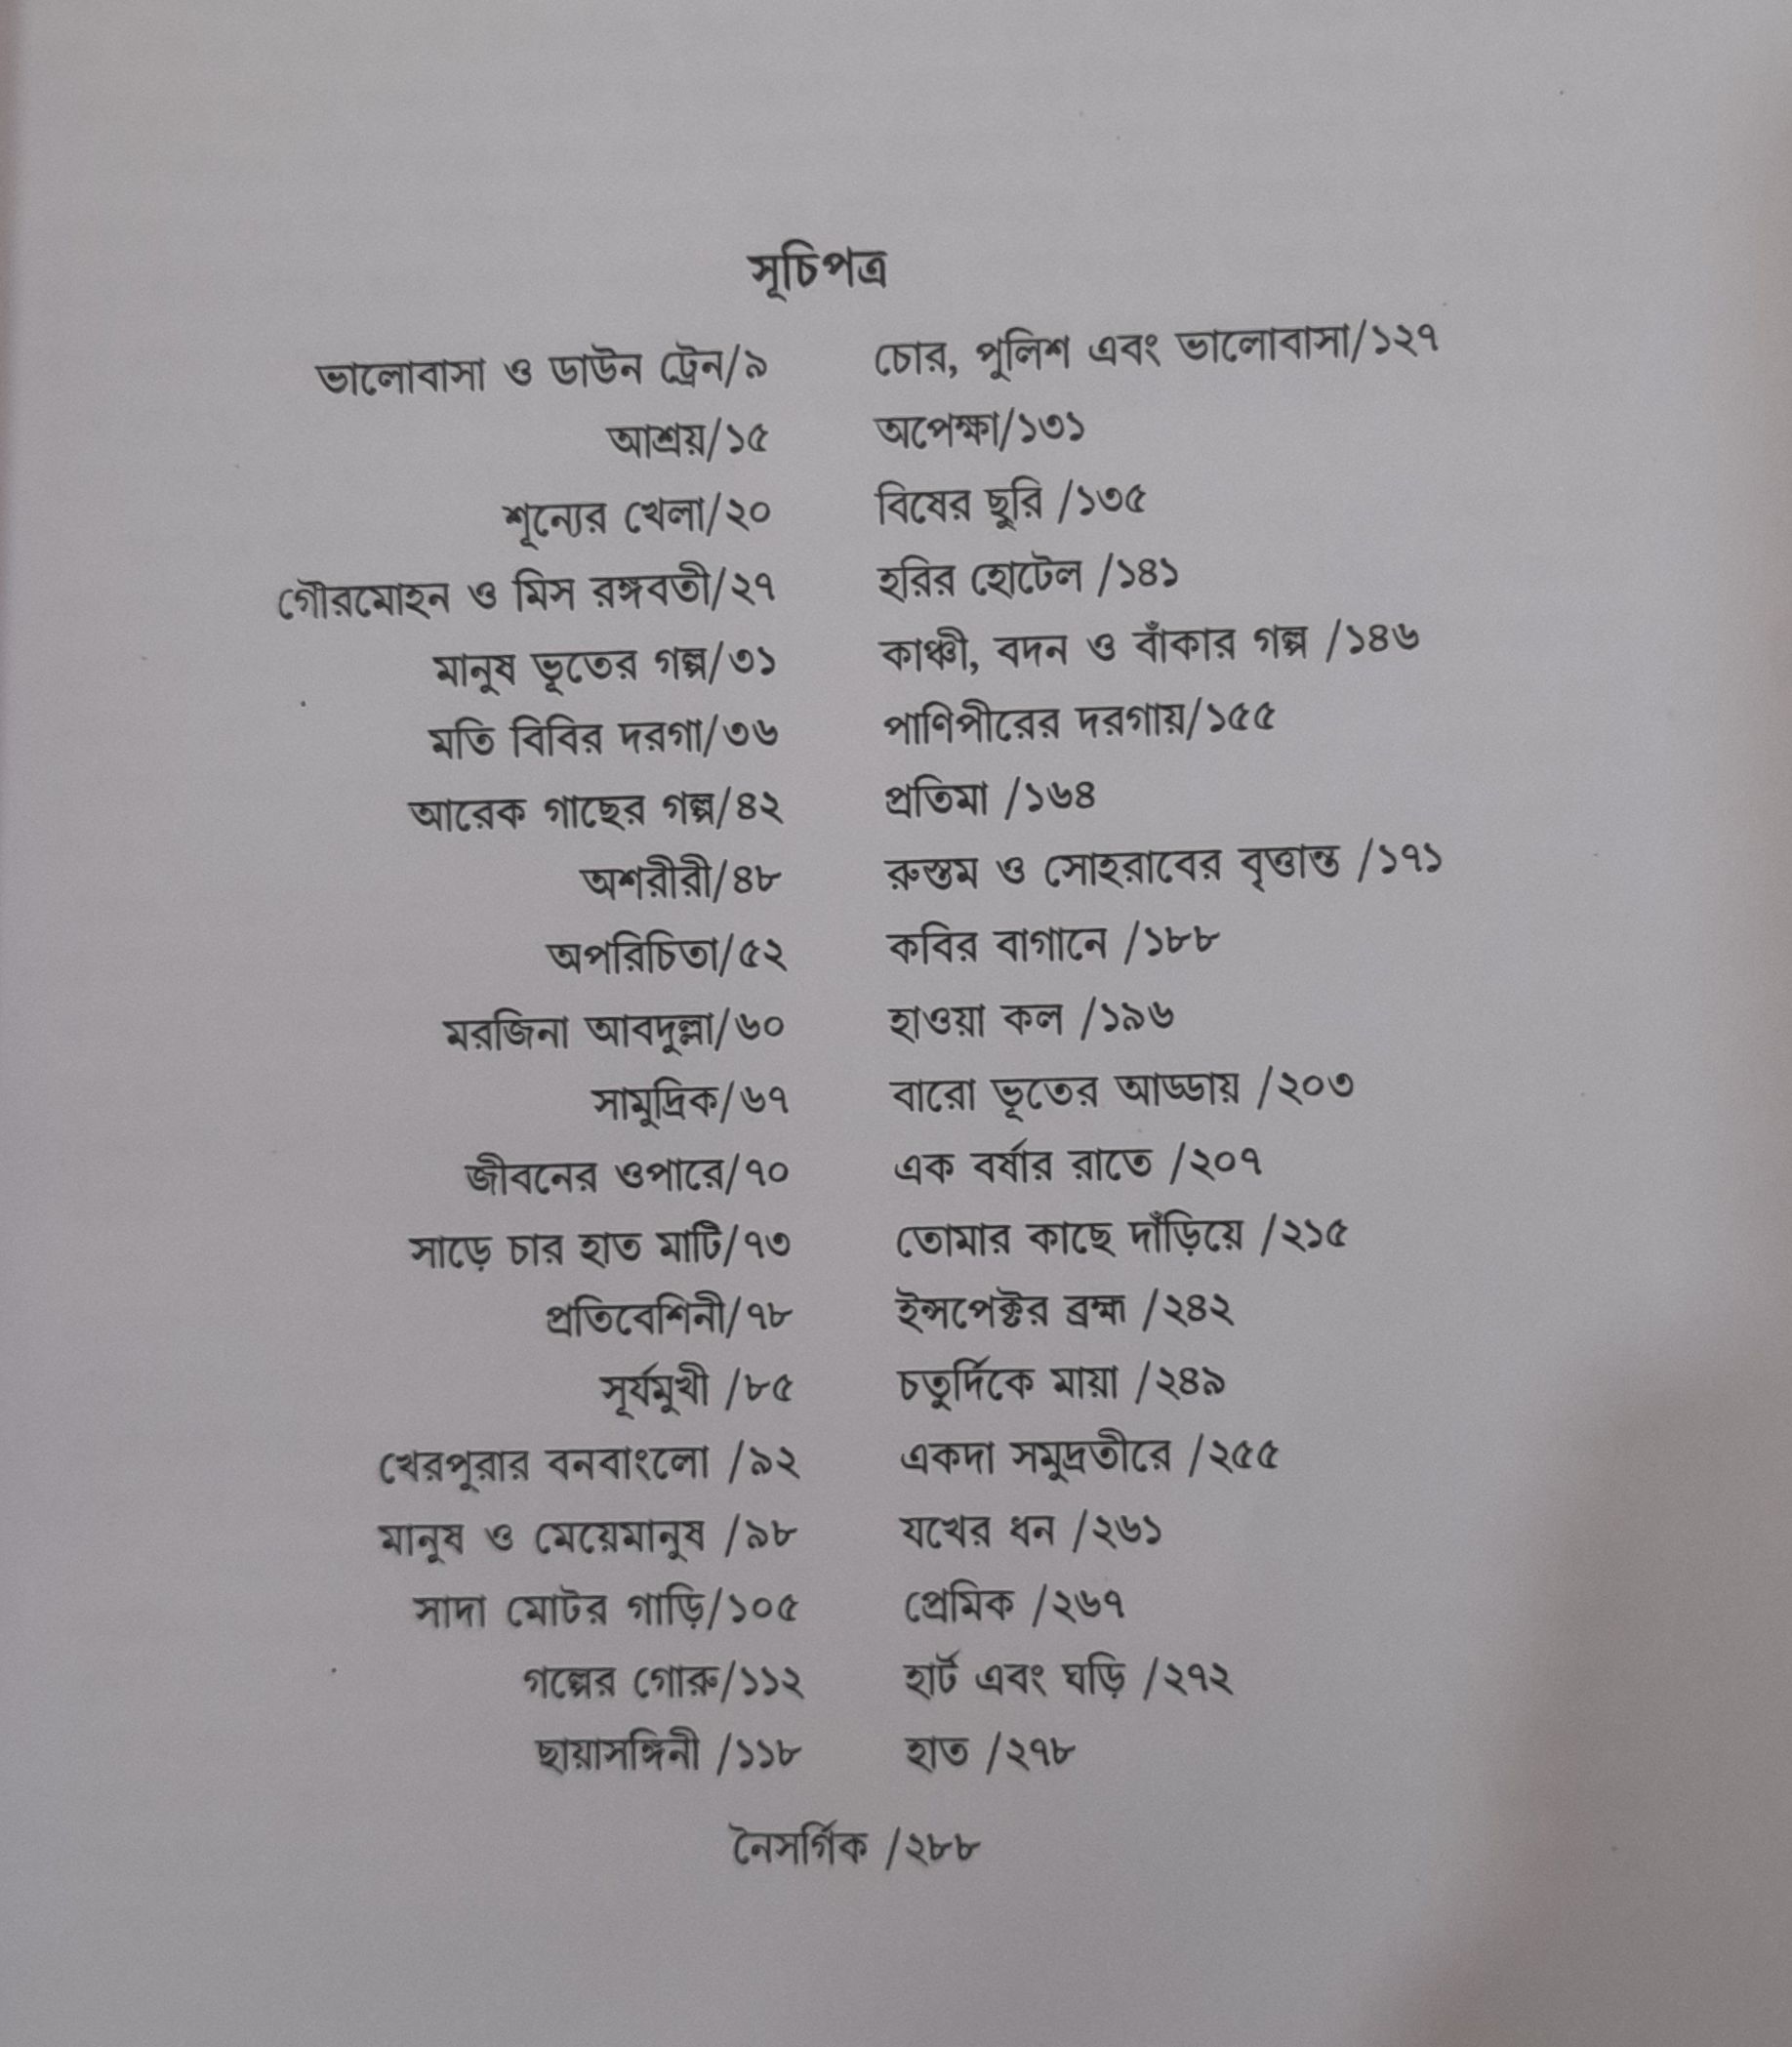 সূচিপত্র
ভালোবাসা ও ডাউন ট্রেন/৯
আশ্রয়/১৫
শূন্যের খেলা/২০
গৌরমোহন ও মিস রঙ্গবতী/২৭
মানুষ ভূতের গল্প/৩১
মতি বিবির দরগা/৩৬
আরেক গাছের গল্প/৪২
অশরীরী/৪৮
অপরিচিতা/৫২
মরজিনা আবদুল্লা/৬০
সামুদ্রিক/৬৭
জীবনের ওপারে/৭০
সাড়ে চার হাত মাটি/৭৩
প্রতিবেশিনী/৭৮
সূর্যমুখী /৮৫
খেরপুরার বনবাংলো /৯২
মানুষ ও মেয়েমানুষ /৯৮
সাদা মোটর গাড়ি/১০৫
গল্পের গোরু/১১২
ছায়াসঙ্গিনী /১১৮
চোর, পুলিশ এবং ভালোবাসা/১২৭
অপেক্ষা/১৩১
বিষের ছুরি /১৩৫
হরির হোটেল /১৪১
কাঞ্চী, বদন ও বাঁকার গল্প /১৪৬
পাণিপীরের দরগায়/১৫৫
প্রতিমা /১৬৪
রুস্তম ও সোহরাবের বৃত্তান্ত /১৭১
কবির বাগানে /১৮৮
হাওয়া কল /১৯৬
বারো ভূতের আড্ডায় /২০৩
এক বর্ষার রাতে /২০৭
তোমার কাছে দাঁড়িয়ে /২১৫
ইন্সপেক্টর ব্রহ্ম /২৪২
চতুর্দিকে মায়া /২৪৯
একদা সমুদ্রতীরে /২৫৫
যখের ধন /২৬১
প্রেমিক /২৬৭
হার্ট এবং ঘড়ি /২৭২
হাত /২৭৮
নৈসর্গিক /২৮৮